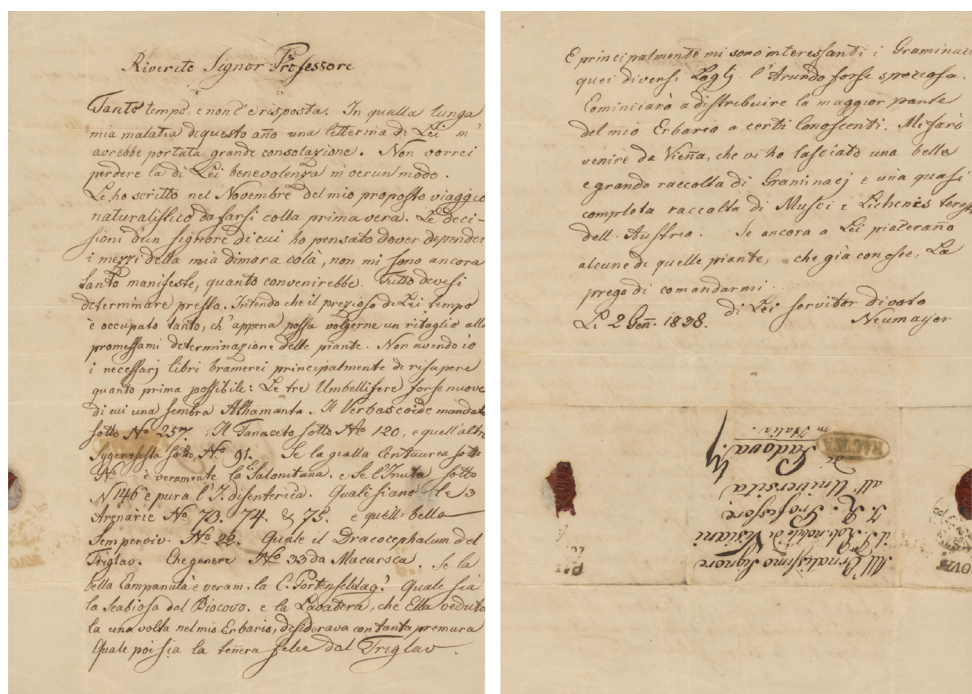 Riverito Signor Professore
Tanto tempo, e non c'è risposta. In qualla lunga
mia malatia di questo año una letterina di Lei m'
avrebbe portata grande consolazione. Non vorrei
perdere la di Lei benevolenza in verun modo.
Le ho scritto nel Novembre del mio proposto viaggio
naturalistico da farsi colla prima vera. Le deci-
sioni d'un signore di cui ho pensato dover depender
i mezzi della mia dimora colà, non mi sono ancora
tanto manifeste, quanto convenirebbe. Tutto devesi
determinare presto. Intendo che il prezioso di Lei tempo
è occupato tanto, ch' appena possa volgerne un ritaglio alla
promessami determinazione delle piante. Non avendo io
i necessarj libri bramerei principalmente di risapere
quanto prima possibile: Le tre Umbellifere forse nuove
di cui una sembra Athamanta. Il Verbascoide mandato
sotto No 257. Il Tanaceto sotto No 120, e quell'altra
Syngenesista sotto No 91. Se la gialla Centaurea sotto
No è veramente la Salonitana, e se l'Inula sotto
N 146 è pura l'I. disenterica. Quale siano le 3
Arenarie No 73. 74. & 75. e quell bello
Semperviv. No 22. Quale il Dracocephalum del
Triglav. Che genere No 33 da Macarsca. Se la
bella Campanula è veram. la C. Portenschlag? Quale sia
la Scabiosa dal Biocovo. e la Lavatera, che Ella veduto
la una volta nel mio Erbario, desiderava con tanta premura
Quale poi sia la teñera Selee dal Triglav.
E principalmente mi sono interessanti i Graminacei
quei diversi l'Arundo forse speziosa.
Cominciarò a distribuire la maggior parte
del mio Erbario a certi Conoscenti. Mi farò
venire da Vieña, che vi ho lasciato una bella
e grande raccolta di Graminacj e una quasi
completa raccolta di Musci e Lichenis
dell' Austria. Se ancora a Lei piaceraño
alcune di quelle piante, che già conosce, La
prego di comandarmi.
di Lei servitor divoto
Le 2 Geñ. 1838. Neumayer
All' Ornatissimo Signore
il S. Rob. nobile di Visiani
I. R. Professore
all' Università
di Padova
in Italia.
RAGUSA